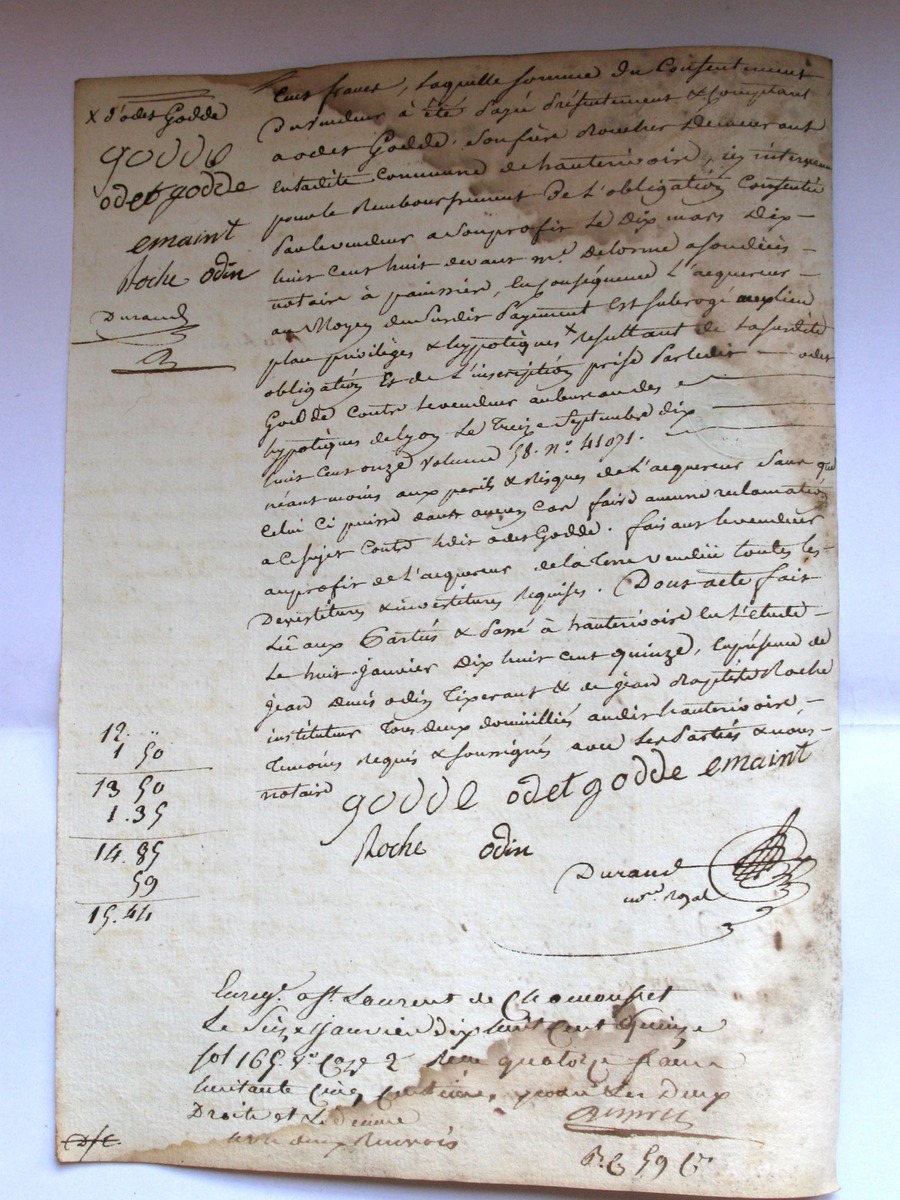 x d'odet Godde
godde
odet godde
emaint
Roche odin
Durand
cent francs, laquelle somme du Consentement
du vendeur à été payé présentement & comptant
a odet Godde, son frère demeurant
en ladite Commune de hauterivoire, icy intervenu
pour le Remboursement De L'obligation Consentie
par le vendeur a son profit Le Dix mars Dix-
huit cent huit devant me. Delorme
notaire à panissière, En conséquence L'acquereur-
au Moyen du susdit payement Est subrogé au lieu
place privilèges & hypotèques x résultant de La susdite
obligation Et de L'inscription prise par ledit — odet
Godde contre le vendeur au bureau des
hypotèques de Lyon Le Treize Septembre dix
huit cent onze volume 58. no. 41071.
néant moins aux perils & Risques de L'acquereur Sans que
celui ci puisse dans aucun cas faire aucune reclamation
a ce sujet Contre ledit odet Godde. faisant le vendeur
au profit de L'acquereur de la Terre vendue toutes les
Devestitures & investitures Requises. (Dont acte fait
Lû aux Parties & passé à hauterivoire En L'étude
Le huit Janvier Dix huit cent quinze, En présence de
jean Denis odin Tixerant & de jean Baptiste Roche
instituteur Tous deux domiciliés audit hauterivoire,
Temoins Requis & soussignés avec Les parties & nous
notaire
godde odet godde emaint
Roche odin
Durand
not. Royal
12. "
1 50
13 50
1.35
14.85
59
15.44
Enregé. a St. Laurent de Chamousset
Le Six Janvier dix huit Cent Quinze
fol 165. vo Case 2 Reçu quatorze francs
huitante Cinq Centimes, pour Les Deux
Droits et Le dixieme
59 Ce